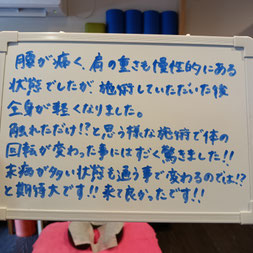 腰が痛く、肩の重さも慢性的にある
状態でしたが、施術していただいた後
全身が軽くなりました。
触れただけ!?と思う様な施術で体の
回転が変わった事にはすごく驚きました!!
未病が多い状態も通う事で変わるのでは!?
と期待大です!! 来て良かったです!!